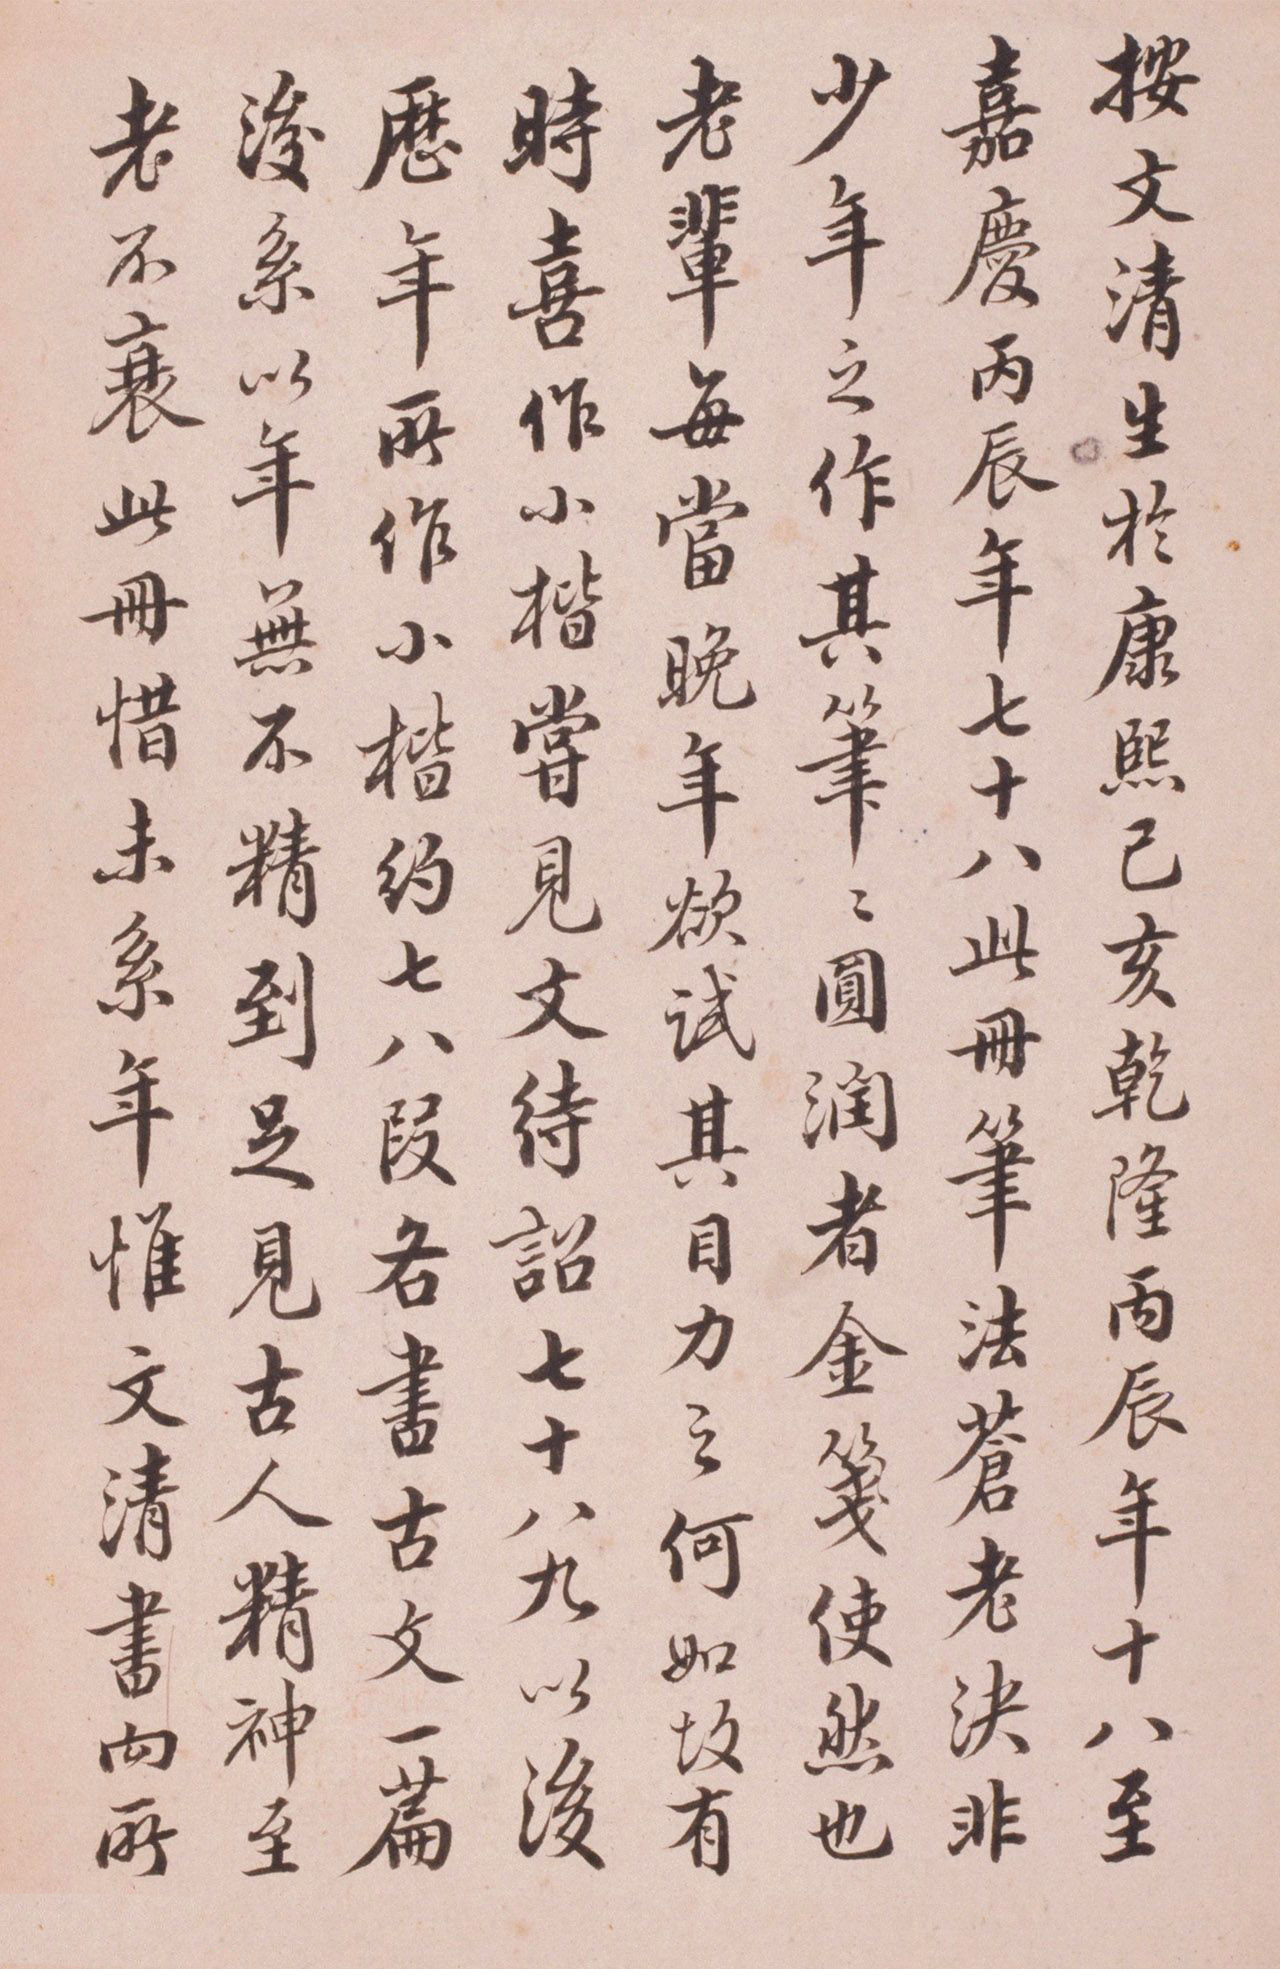 按文清生於康熙己亥乾隆丙辰年十八至
嘉慶丙辰年七十八此冊筆法蒼老決非
少年之作其筆〻圓潤者金箋使然也
老輩每當晚年欲試其目力之何如故有
時喜作小楷嘗見文待詔七十八九以後
歷年所作小楷約七八段各書古文一篇
後系以年無不精到足見古人精神至
老不衰此冊惜未系年惟文清書向所